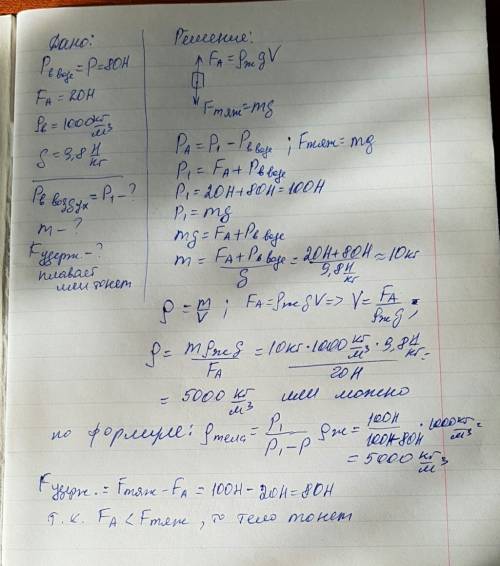 Дано:
P в воде = P = 80Н
F_A = 20Н
ρв = 1000 кг/м³
g = 9,8 Н/кг
P в воздух = P₁ - ?
m - ?
F удерж. - ?
плавает
или тонет
Решение:
F_A = ρж gV
Fтяж = mg
P_A = P₁ - P в воде ; Fтяж = mg
P₁ = F_A + P в воде
P₁ = 20Н + 80Н = 100Н
P₁ = mg
mg = F_A + P в воде
m = (F_A + P в воде)/g = (20Н + 80Н)/(9,8 Н/кг) ≈ 10кг
ρ = m/V ; F_A = ρж g V => V = F_A/(ρж g) ;
ρ = (mρж g)/F_A = (10кг · 1000 кг/м³ · 9,8 Н/кг)/20Н =
= 5000 кг/м³ или можно
по формуле: ρтела = P₁/(P₁ - P) ρж = 100Н/(100Н - 80Н) · 1000 кг/м³ =
= 5000 кг/м³
F удерж. = Fтяж - F_A = 100Н - 20Н = 80Н
т.к. F_A < Fтяж, то тело тонет